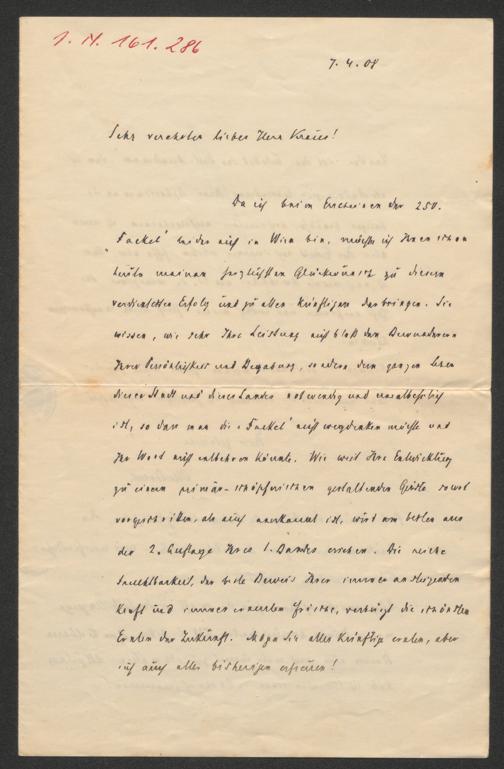 J. N. 161.286
7.4.08
Sehr verehrter lieber Herr Kraus!
Da ich beim Erscheinen der 250.
„Fackel" leider nicht in Wien bin, möchte ich Ihnen schon
heute meinen herzlichsten Glückwunsch zu diesem
verdientesten Erfolg und zu allen künftigen darbringen. Sie
wissen, wie sehr Ihre Leistung nicht bloß den Bewunderern
Ihrer Persönlichkeit und Begabung, sondern dem ganzen Leben
dieser Stadt und dieses Landes notwendig und unentbehrlich
ist, so dass man die „Fackel" nicht wegdenken möchte und
Ihr Wort nicht entbehren könnte. Wie weit Ihre Entwicklung
zu einem primär-schöpferischen gestaltenden Geiste sowol
vorgeschritten, als auch anerkannt ist, wird am besten aus
der 2. Auflage Ihres 1. Bandes ersehen. Die reiche
Fruchtbarkeit, der beste Beweis Ihrer immer ansteigenden
Kraft und immer erneuten Frische, verbürgt die schönsten
Ernten der Zukunft. Mögen Sie alles Künftige ernten, aber
sich auch alles bisherigen erfreuen!